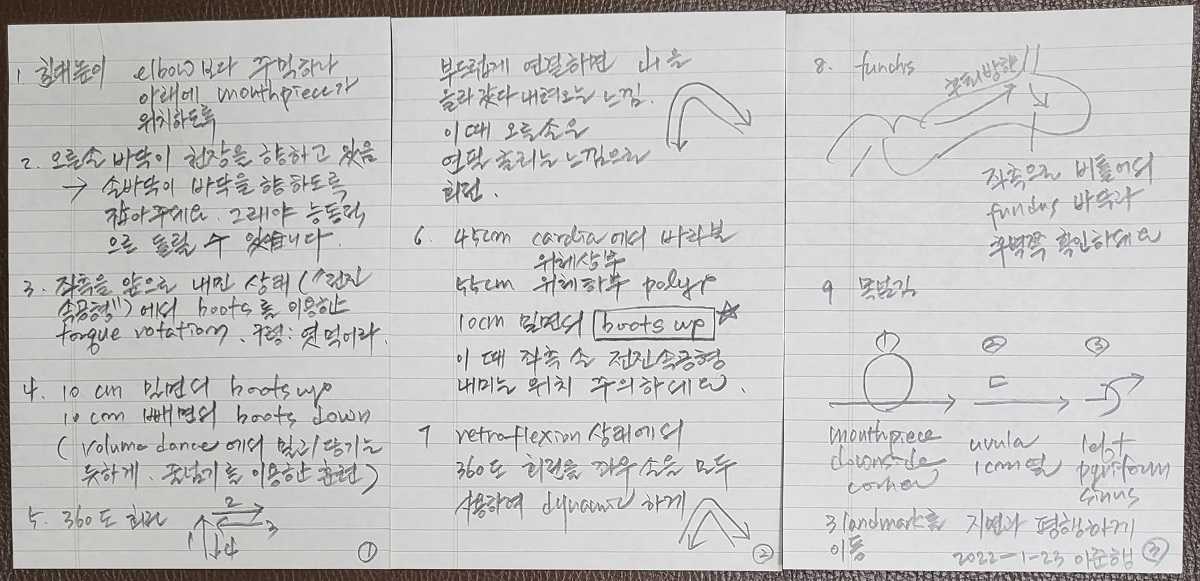 1. 침대높이 elbow보다 주먹하나
아래에 mouthpiece가
위치하도록
2. 오른손 바닥이 천장을 향하고 있음
→ 손바닥이 바닥을 향하도록
잡아주세요. 그래야 능동적
으로 돌릴 수 있습니다.
3. 좌측을 앞으로 내민 상태 ("전진
속공형")에서 boots를 이용한
torque rotation. 구령: 엿먹어라.
4. 10 cm 밀면서 boots up
10 cm 빼면서 boots down
(volume dance에서 밀고/당기는
듯하게. 줄넘기를 이용한 훈련)
5. 360도 회전
2
3
4
①
부드럽게 연결하면 산을
올라갔다 내려오는 느낌.
이 때 오른손은
연필 돌리는 느낌으로
회전.
6. 45cm cardia에서 바라본
위체상부
55cm 위체하부 polyp
10cm 밀면서 boots up ☆
이 때 좌측 손 전진속공형
내미는 위치 주의하세요.
7 retroflexion 상태에서
360도 회전을 좌우 손을 모두
사용하여 dynamic 하게
②
8. fundus
방향
좌측으로 비틀어서
fundus 바닥과
후벽쪽 확인하세요
9 목넘김
① ② ③
mouthpiece
downside
corner
uvula
1cm 옆
left
pyriform
sinus
3 landmark를 지면과 평행하게
이동
2022-1-23 이준행
③